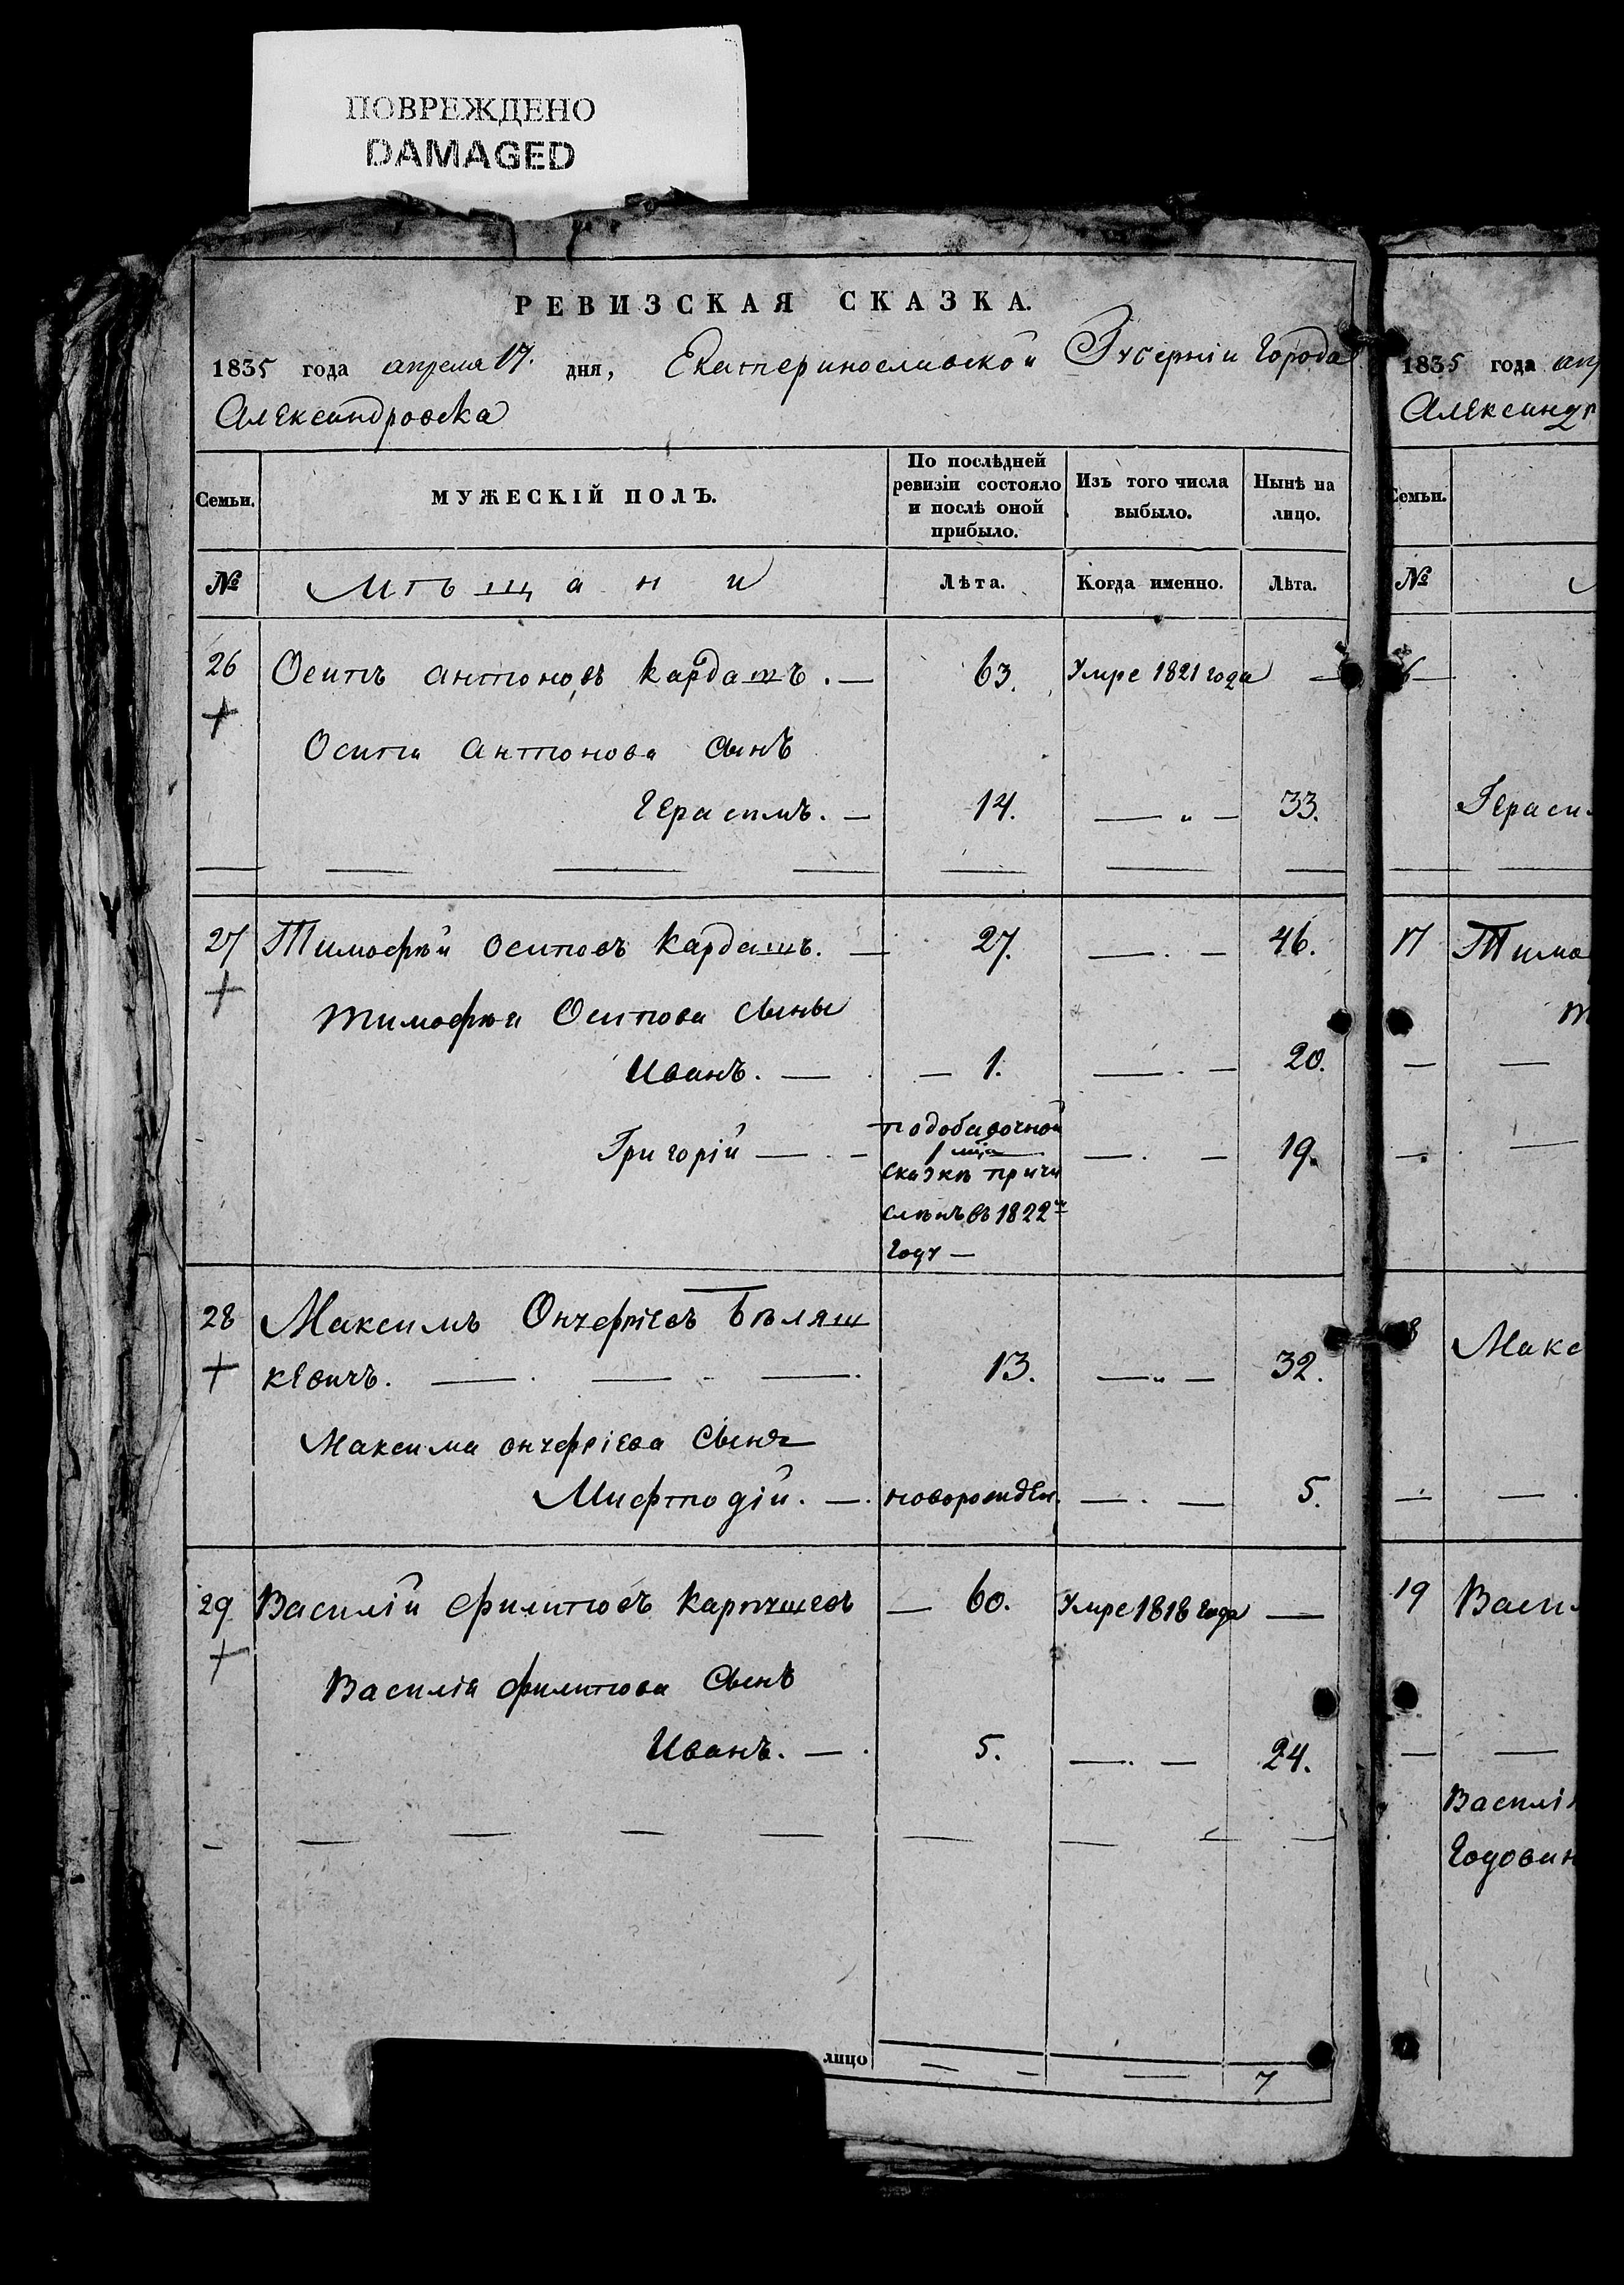 ПОВРЕЖДЕНО
DAMAGED
РЕВИЗСКАЯ СКАЗКА.
1835 года апреля 17. дня, Екатеринославской Губерніи города
Александровска
Семьи.
МУЖЕСКІЙ ПОЛЪ.
По послѣдней
ревизіи состояло
и послѣ оной
прибыло.
Изъ того числа
выбыло.
Нынѣ на
лицо.
№ Мѣщани Лѣта. Когда именно. Лѣта.
26 Осипъ антоновъ кардашъ. — 63. Умре 1821 года —
Осипа антонова сынъ
Герасимъ. — 14. — „ — 33.
27 Тимофѣй осиповъ кардашъ. — 27. — . — 46.
Тимофѣя Осипова сыны
Иванъ. — — 1. — . — 20.
Григорій — — подобавочной — . — 19.
сказкѣ причи
сленъ въ 1822м
году —
28 Максимъ Онуфріевъ бѣляш
кевичъ. — . — - — . 13. — „ — 32.
Максима онуфріева сынъ
Мифтодій. — . новорожден. — . — 5.
29 Василій филиповъ карпушевъ — 60. Умре 1818 года —
Василія филипова сынъ
Иванъ. — . 5. — . — 24.
лицо — — — 7
1835 года апр
Александр
Семьи.
№
Гераси
17 Тимо
Макс
19 Васи
Василі
Годован